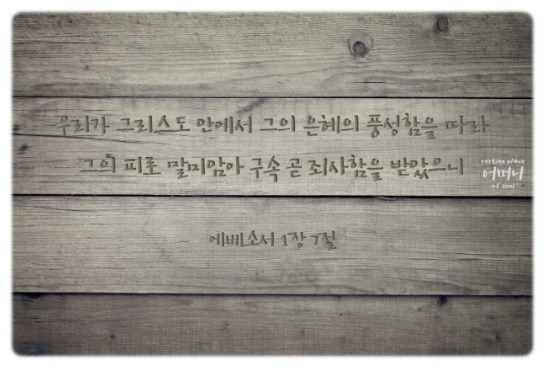 우리가 그리스도 안에서 그의 은혜의 풍성함을 따라
그의 피로 말미암아 구속 곧 죄사함을 받았으니
에베소서 1장 7절
resting place
어머니
of soul